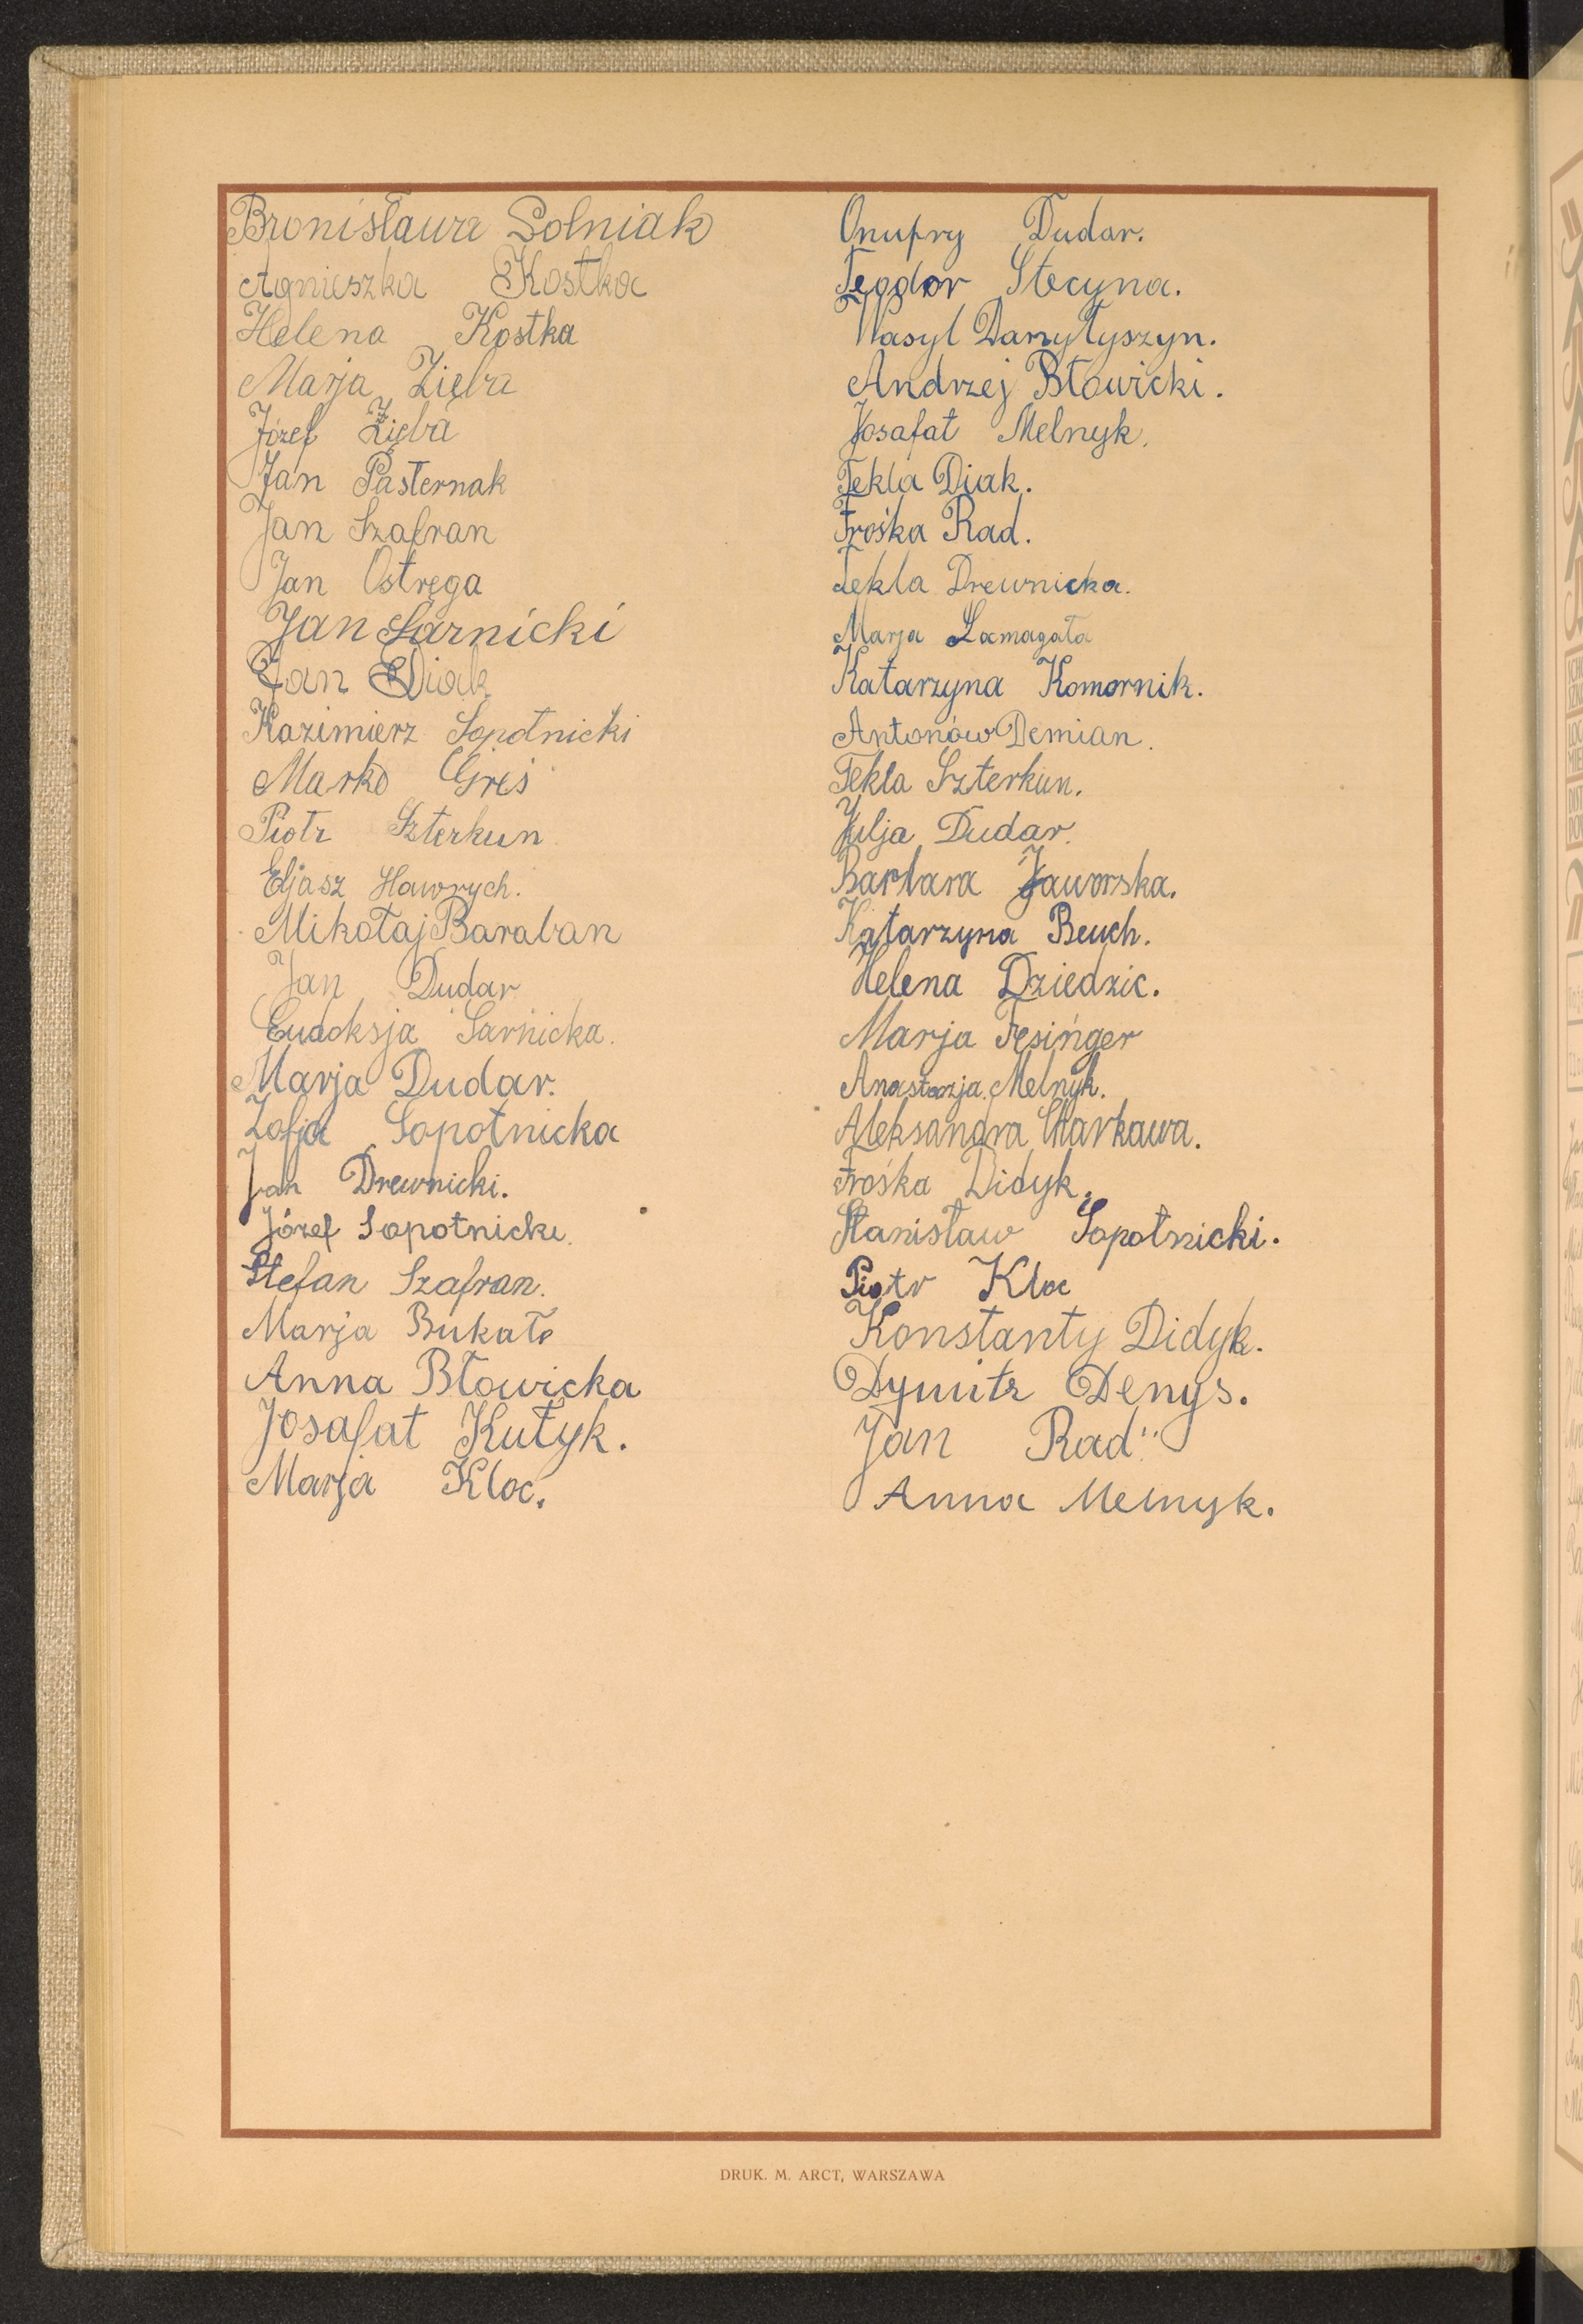 Bronisława Solniak
Agnieszka Kostka
Helena Kostka
Marja Zięba
Józef Zięba
Jan Pasternak
Jan Szafran
Jan Ostręga
Jan Sarnicki
Jan Diak
Kazimierz Sopotnicki
Marko Greś
Piotr Szterkun
Eljasz Hawrych.
Mikołaj Baraban
Jan Dudar
Eudoksja Sarnicka.
Marja Dudar.
Zofja Sopotnicka
Jan Drewnicki.
Józef Sopotnicki.
Stefan Szafran.
Marja Bukało
Anna Błowicka
Josafat Kutyk.
Marja Kloc.
Onufry Dudar.
Teodor Stecyna.
Wasyl Danyłyszyn.
Andrzej Błowicki.
Josafat Melnyk.
Tekla Diak.
Frośka Rad.
Tekla Drewnicka.
Marja Łamagała
Katarzyna Komornik.
Antonów Demian.
Tekla Szterkun.
Julja Dudar.
Barbara Jaworska.
Katarzyna Beuch.
Helena Dziedzic.
Marja Fesinger
Anastazja Melnyk.
Aleksandra Charkawa.
Frośka Didyk.
Stanisław Sopotnicki.
Piotr Kloc
Konstanty Didyk.
Dymitr Denys.
Jan Rad
Anna Melnyk.
DRUK. M. ARCT, WARSZAWA